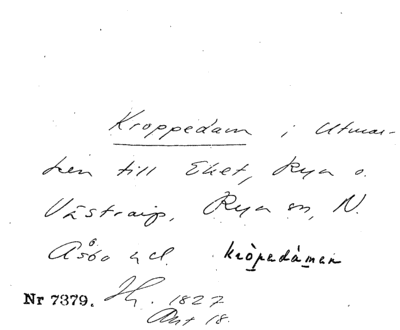 Kroppedam i Utmar-
ken till Eket, Rya o.
Västraip, Rya sn, N.
Åsbo hd kròpedàmen
Nr 7379. 1827
Art 18.